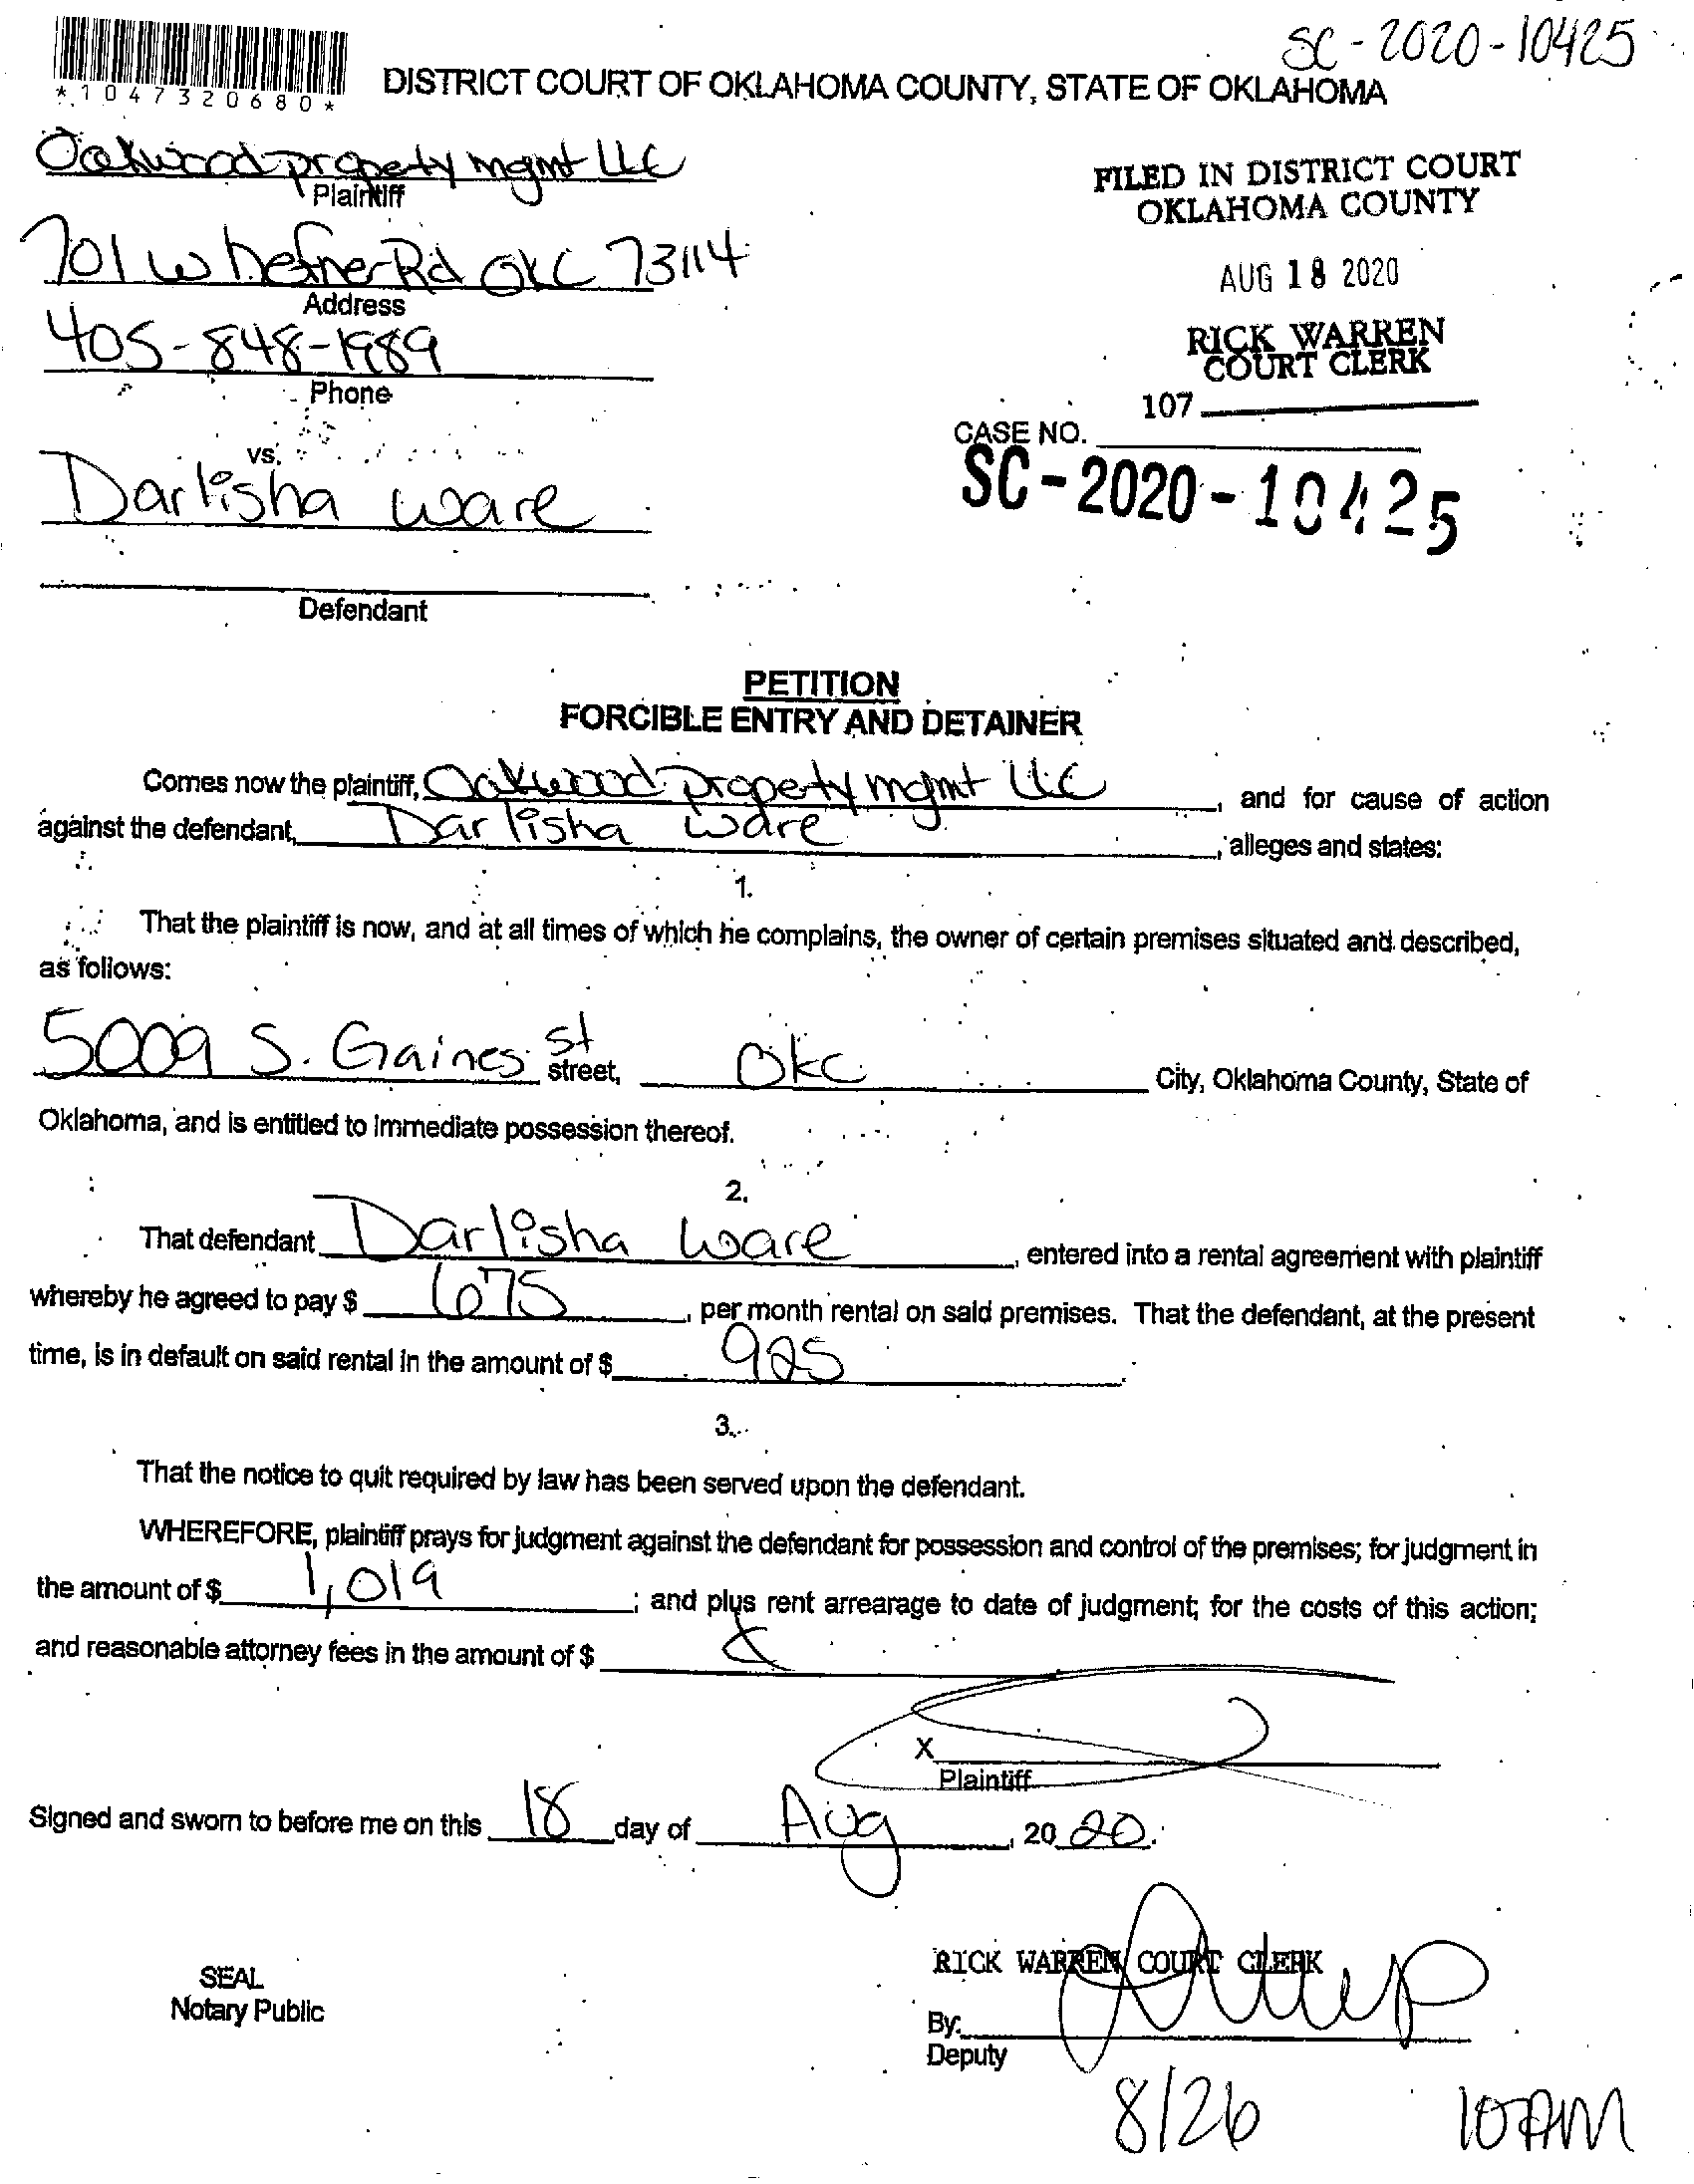 SC-2020-10425
*1047320680*
DISTRICT COURT OF OKLAHOMA COUNTY, STATE OF OKLAHOMA
Oakwood property mgmt LLC
Plaintiff
FILED IN DISTRICT COURT
OKLAHOMA COUNTY
701 W hefner Rd OKC 73114
Address
AUG 18 2020
405-848-1989
Phone
RICK WARREN
COURT CLERK
107
CASE NO.
vs.
SC-2020-10425
Darlisha Ware
Defendant
PETITION
FORCIBLE ENTRY AND DETAINER
Comes now the plaintiff, Oakwood property mgmt LLC, and for cause of action
against the defendant, Darlisha Ware, alleges and states:
1.
That the plaintiff is now, and at all times of which he complains, the owner of certain premises situated and described,
as follows:
5009 S. Gaines st street, Okc City, Oklahoma County, State of
Oklahoma, and is entitled to immediate possession thereof.
2.
That defendant Darlisha Ware, entered into a rental agreement with plaintiff
whereby he agreed to pay $ 675, per month rental on said premises. That the defendant, at the present
time, is in default on said rental in the amount of $ 925.
3.
That the notice to quit required by law has been served upon the defendant.
WHEREFORE, plaintiff prays for judgment against the defendant for possession and control of the premises; for judgment in
the amount of $ 1,019; and plus rent arrearage to date of judgment; for the costs of this action;
and reasonable attorney fees in the amount of $
X
Plaintiff
Signed and sworn to before me on this 18 day of Aug, 20 20.
RICK WARREN COURT CLERK
SEAL
Notary Public
By:
Deputy
8/26 10 AM